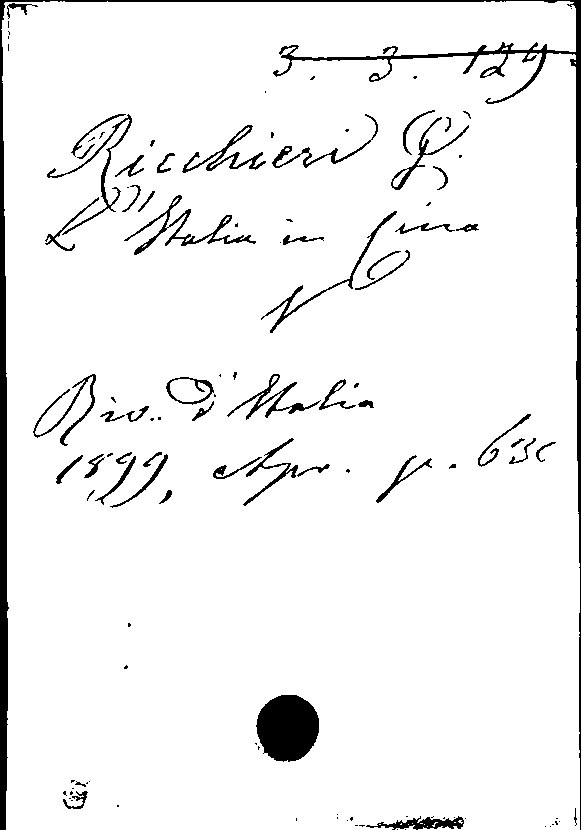 3. 3. 129
Ricchieri G.
L'Italia in Cina
Riv. d'Italia
1899, Apr. p. 63